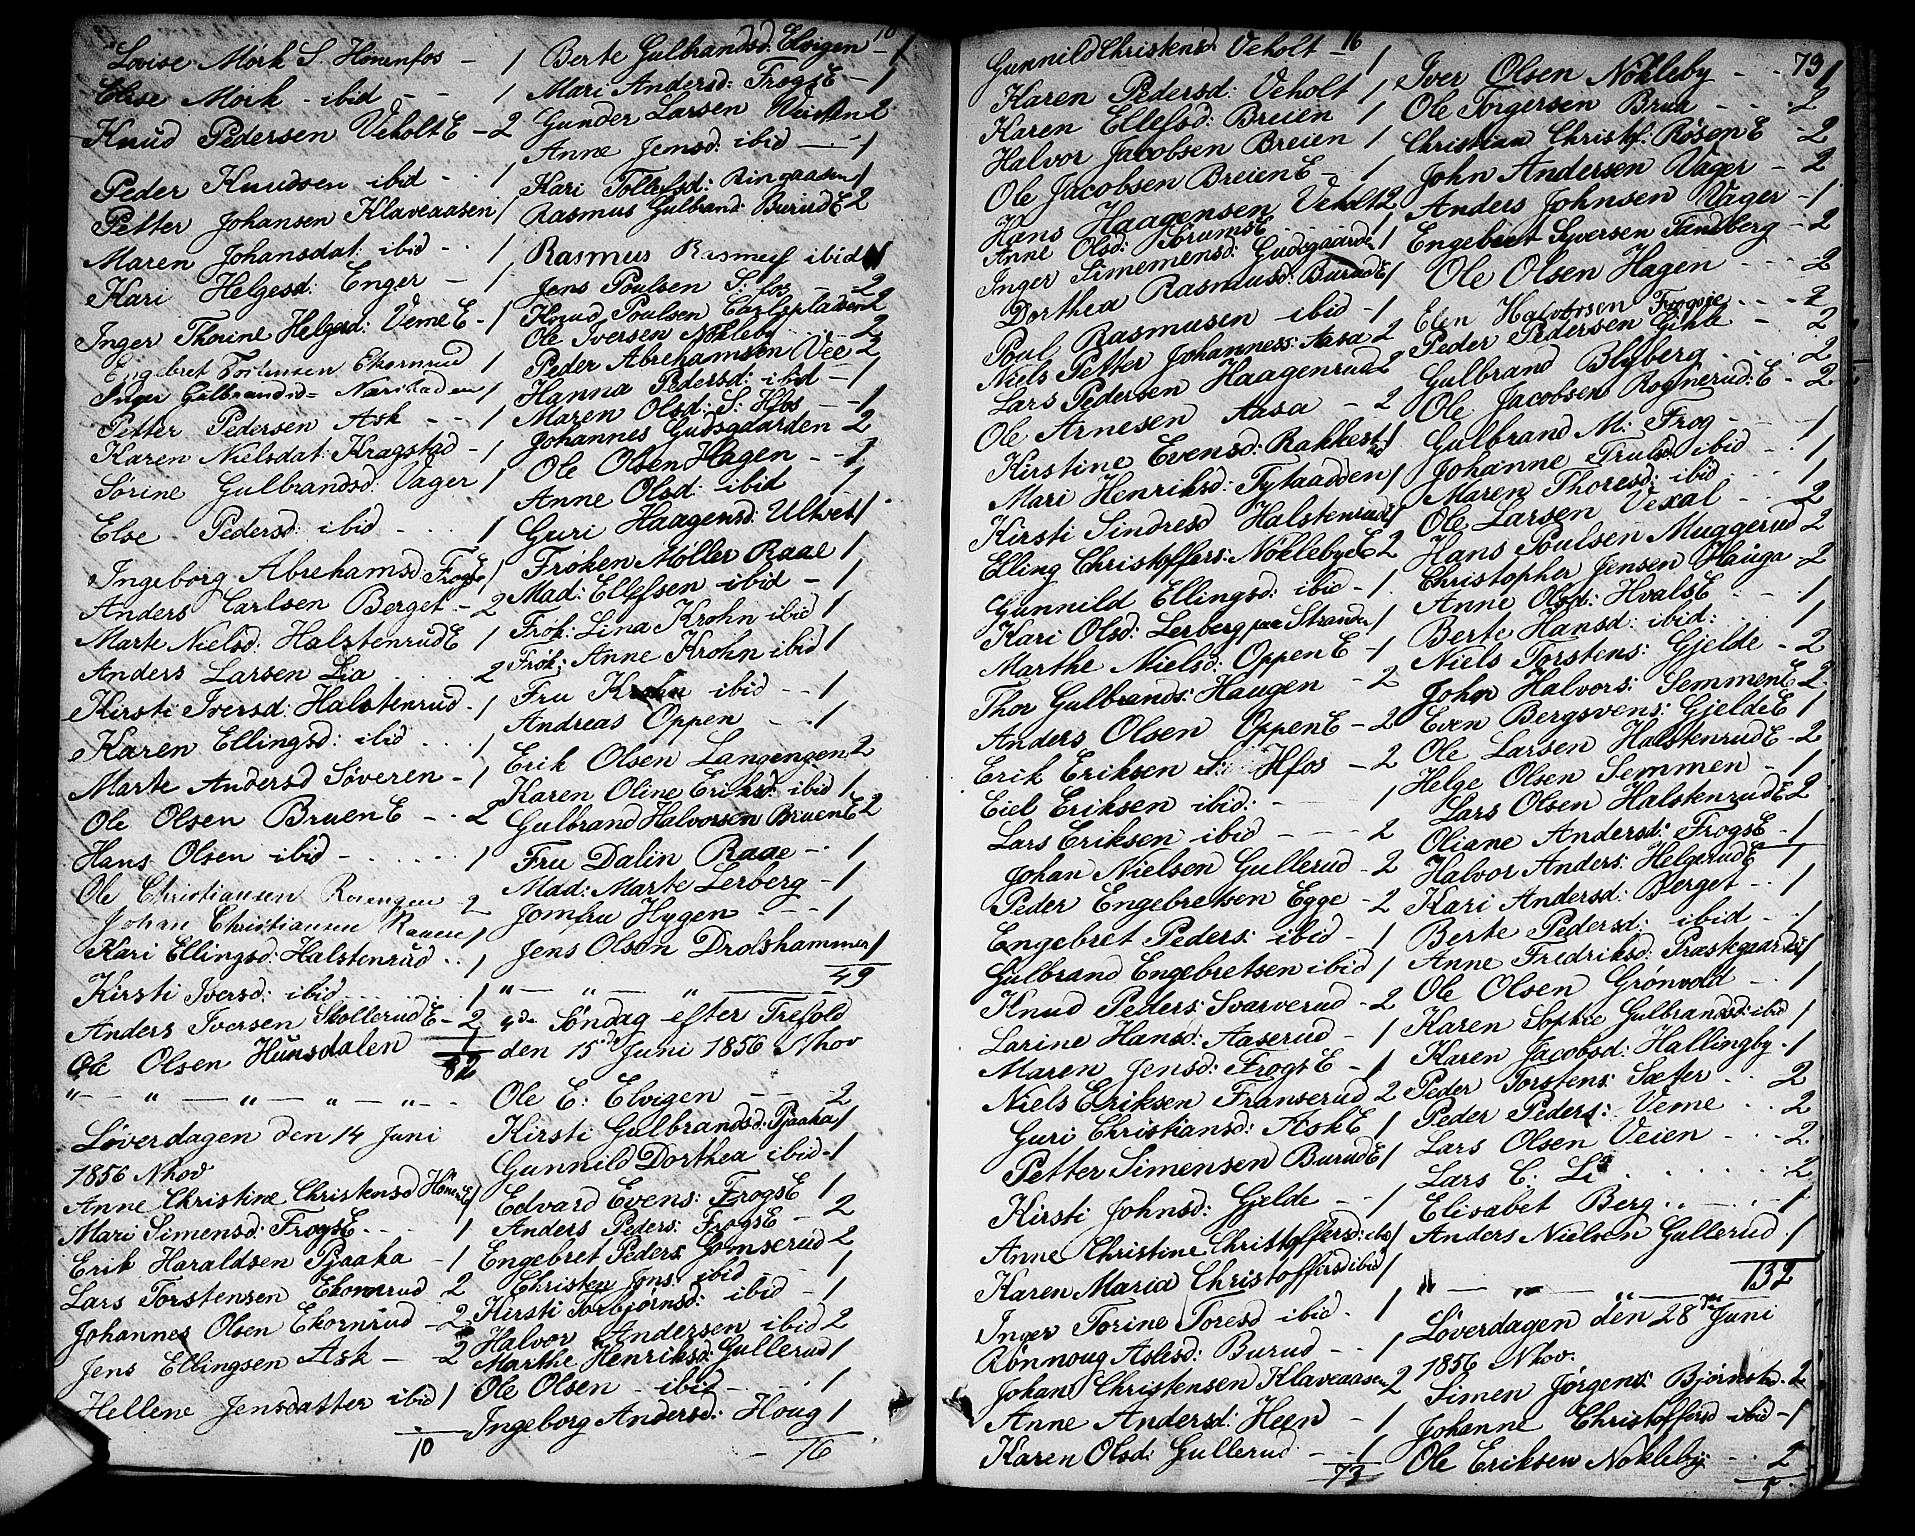 Lovise Mørk S. Hønenfos - 1
Elise Mørk - ibid - - 1
Knud Pedersen Veholt E - 2
Peder Knudsen ibid - - 1
Petter Johansen Klaveaasen 1
Maren Johansdat: ibid - - 1
Kari Helgesd: Enger - 1
Inger Thorine Helgesd: Veme E - 1
Engebret Ekornrud 1
Inger Gulbrandsd= 1
Petter Pedersen Ask - - 1
Karen Nielsdat: Kragstad - 1
Sørine Gulbrandsd: Vager 1
Else Pedersd: ibid - . . 1
Ingeborg Abrehamsd Frogs E 1
Anders Carlsen Berget - 2
Marte Nielsd: Halstenrud E 1
Anders Larsen Lia . . . 2
Kirsti Iversd: Halstenrud - 1
Karen Ellingsd: ibid . . . 1
Marte Andersd Søveren - 1
Ole Olsen Bruen E - . 2
Hans Olsen ibid - . . . . 1
Ole Christiansen Rosengen - 2
Johan Christiansen 1
Kari Ellingsd: Halstenrud . . 1
Kirsti Iversd: ibid . . . . 1
Anders Iversen Skollerud E - 2
Ole Olsen Hunsdalen 1
82
" - " - " - " - " - .
Løverdagen den 14 Juni
1856 Nhov
Anne Christine Christensd Høne E 1
Mari Simensd: Frogs E . - - 1
Erik Haraldsen Pjaaka - 1
Lars Torstensen Ekornrud 2
Johannes Olsen Ekornrud - 2
Jens Ellingsen Ask - 2
Hellene Jensdatter ibid 1
10
10
Berte Gulbrandsd: Elvigen - 1
Mari Andersd: Frogs E - 1
Gunder Larsen 2
Anne Jensd: ibid - - 1
Kari Tollefsd: Ringaasen 1
Rasmus Gulbrand: Burud E 2
Rasmus Rasmess ibid 1
Jens Poulsen S: fos - 2
Knud Poulsen 2
Ole Iversen Nøkleby . . . 2
Peder Abrehamsen Vee 2
Hanna Pedersd: ibid - 1
Maren Olsd: S: Hfos - - 1
Johannes Gudsgaarden 2
Ole Olsen Hagen - - 1
Anne Olsd: ibid 1
Guri Haagensd: Ultvet 1
Frøken Møller Raae 1
Mad: Ellefsen ibid - 1
Frøk: Lina Krohn ibid 1
Frøk: Anne Krohn ibid 1
Fru Krohn ibid - - 1
Andreas Oppen - - 1
Erik Olsen Langengen 2
Karen Oline Eriksd: ibid 1
Gulbrand Halvorsen Bruen E 2
Fru Dalin Raae - . 1
Mad: Marte Lerberg - 1
Jomfru Hygen . - - 1
Jens Olsen Drolshammer 1
49
" - " - " -
4de Søndag efter Trefold
den 15de Juni 1856 Nhov
Ole E: Elvigen - - 2
Kirsti Gulbrandsd: Pjaaka 1
Gunnild Dorthea ibid - 1
Edvard Evens: Frogs E 1
Anders Peders: Frogs E - 2
Engebret Peders: Gomserud 2
Christen Jens: ibid - - 1
Kirsti Torbjørnsd: ibid - 1
Halvor Andersen ibid 2
Marthe Henriksd: Gullerud 1
Ole Olsen - ibid - . 1
Ingeborg Andersd: Houg 1
- 16
16
Gunnild Christensd Veholt - 1
Karen Pedersd: Veholt 1
Karen Ellefsd: Breien 1
Halvor Jacobsen Breien 1
Ole Jacobsen Breien E - . 1
Hans Haagensen Veholt 2
Anne Olsd: Sørums E . . . . 1
Inger Simemensd: Gudsgaarden 1
Dorthea Rasmusd: Burud E 1
Poul Rasmusen ibid - 1
Niels Petter Johanness: Aasa 2
Lars Pedersen Haagenrud 2
Ole Arnesen Aasa - 2
Kirstine Evensd: Rakkest 1
Mari Henriksd: Tytaadden 1
Kirsti Sindresd Halstenrud 1
Elling Christoffers: Nøkleby E 2
Gunnild Ellingsd: ibid - 1
Kari Olsd: Lerberg paa Strande 1
Marthe Nielsd: Oppen E - 1
Thor Gulbrands: Haugen - 2
Anders Olsen Oppen E - 2
Erik Eriksen S: Hfos - 2
Eiel Eriksen ibid: - - 1
Lars Eriksen ibid - - - - 2
Johan Nielsen Gullerud - 2
Peder Engebretsen Egge - 2
Engebret Peders: ibid - 1
Gulbrand Engebretsen ibid 1
Knud Peders: Svarverud - 2
Larine Hansd: Aaserud - 1
Maren Jensd: Frogs E - 1
Niels Eriksen Franserud 2
Guri Christiansd: Ask E 1
Petter Simensen Burud E 1
Kirsti Johnsd: Gjelde - - 1
Anne Christine Christoffersd: ibid 1
Karen Maria Christoffersd ibid 1
Inger Torine Toresd ibid . 1
Rønnoug Aslesd: Burud - - 1
Johan Christensen Klaveaasen 2
Anne Andersd: Heen - 1
Karen Olsd: Gullerud - - 1
73
73
Iver Olsen Nøkleby - - - 1
Ole Torgersen Brua - - - . 2
Christian Christof: Røsen E - 2
John Andersen Vager - 2
Anders Johnsen Vager - 1
Engebret Syversen Tandberg - 2
Ole Olsen Hagen - - - 2
Elen Halvorsen Frogsie - - - 2
Peder Pedersen Gihle - 2
Gulbrand Blyberg . . . 2
Ole Jacobsen Rognerud: E - 2
Gulbrand M: Frog - - 1
Johanne Trulsd ibid - . 1
Maren Thoresd: ibid - 1
Ole Larsen Vexal - - - 2
Hans Poulsen Muggerud 2
Christopher Jensen Hauga - 2
Anne Olsd: Hvals E - - 1
Berte Hansd: ibid: . . 1
Niels Torstens: Gjelde - 2
John Halvors: Semmen E 2
Even Bergsvens: Gjelde E 1
Ole Larsen Halstenrud E - 2
Helge Olsen Semmen - 1
Lars Olsen Halstenrud E 2
Oliane Andersd: Frogs E - 1
Halvor Anders: Helgerud E 1
Kari Andersd: Berget - . 1
Berte Pedersd: ibid - . 1
Anne Fredriksd: Præstegaards E 1
Ole Olsen Grønvold - . 1
Karen Sophie Gulbrandsd: ibid 1
Karen Jacobsd: Hallingby . 1
Peder Torstens: Sæter . . 2
Peder Peders: Veme . . 2
Lars Olsen Veien - - - 2
Lars C: Li . . . . . . 2
Elisabet Berg . . - . - 1
Anders Nielsen Gullerud . 1
132
" - " - " -
Løverdagen den 28de Juni
1856 Nhov.
Simen Jørgens: Bjørnstad . 2
Johanne Christoffersd ibid - 1
Ole Eriksen Nøkleby . . . 2
5